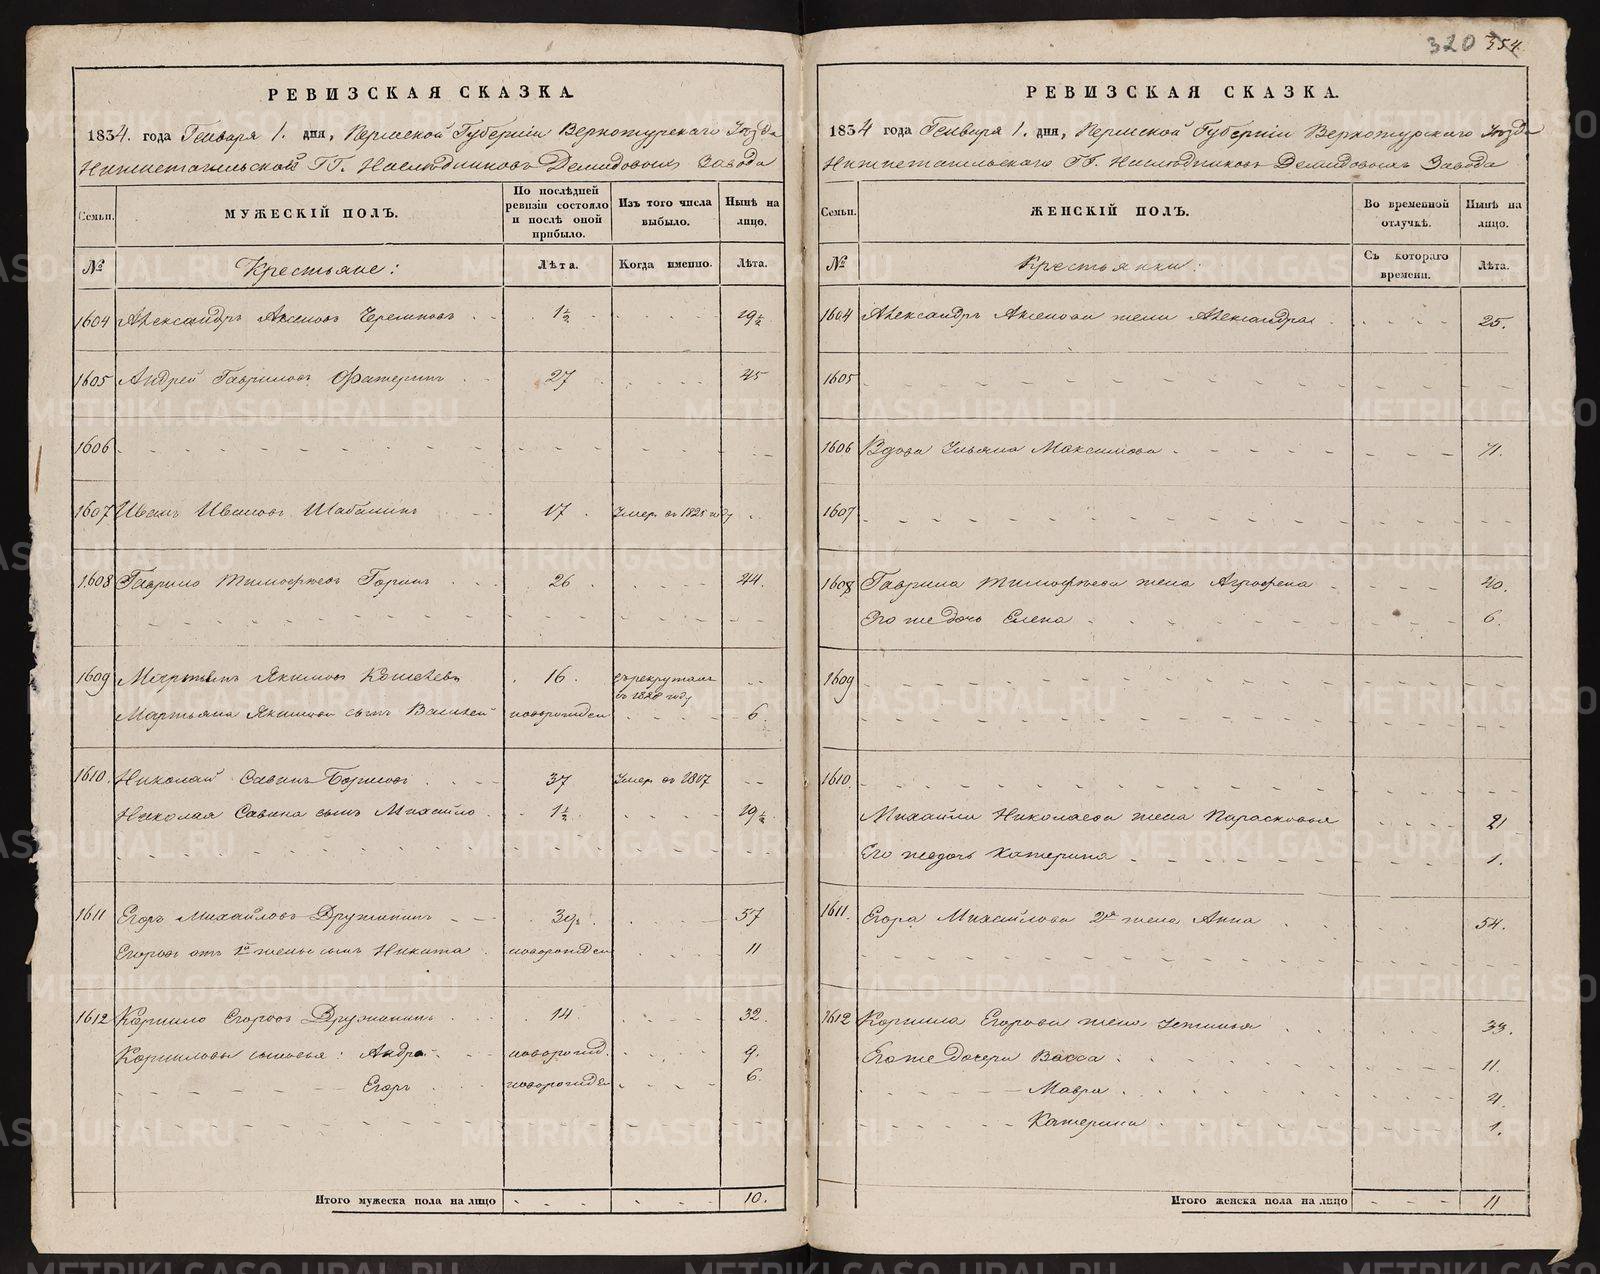 320 354
РЕВИЗСКАЯ СКАЗКА.
1834. года Генваря 1. дня, Пермской Губернiи Верхотурскаго Уѣзда
Нижнетагильскаго ГГ. Наслѣдниковъ Демидовыхъ Завода
Семьи.
МУЖЕСКIЙ ПОЛЪ.
По послѣдней ревизiи состояло и послѣ оной прибыло.
Изъ того числа выбыло.
Нынѣ на лицо.
№
Крестьяне:
Лѣта.
Когда именно.
Лѣта.
1604 Александръ Аксеновъ 1½ 19½
1605 Андрей Гавриловъ 27 45
1606
1607 Иванъ Ивановъ Шабалинъ 17 Умер. въ 1825 году
1608 Гаврило Тимофѣевъ 26 44.
1609 Мартынъ Якимовъ 16. въ рекрутахъ
въ 1828 году
Мартьяна Якимова сынъ Василей новорожден 6
1610. Николай Савинъ 37 Умер. въ 1817
Николая Савина сынъ Михайло 1½ 19½
1611 Егоръ Михайловъ Дружининъ 39. 57
Егоровъ отъ 1й жены сынъ Никита новорожден 11
1612 Корнило Егоровъ Дружининъ 14 32.
Корниловы сыновья: Андрей новорожд. 9.
Егоръ новорожден 6.
Итого мужеска пола на лицо 10.
РЕВИЗСКАЯ СКАЗКА.
1834 года Генваря 1. дня, Пермской Губернiи Верхотурскаго Уѣзда
Нижнетагильскаго ГГ. Наслѣдниковъ Демидовыхъ Завода
Семьи.
ЖЕНСКIЙ ПОЛЪ.
Во временной отлучкѣ.
Нынѣ на лицо.
№
Крестьянки:
Съ котораго времени.
Лѣта.
1604 Александръ Аксенова жена Александра 25.
1605
1606 Вдова Ульяна Максимова 71.
1607
1608 Гаврила Тимофѣева жена Агрофена 40.
Его же дочь Елена 6.
1609
1610.
Михайла Николаева жена Парасковья 21
Его же дочь Катерина 1.
1611. Егора Михайлова 2я жена Анна 54.
1612 Корнила Егорова жена Устинья 33.
Его же дочери Васса 11.
Мавра 4.
Катерина 1.
Итого женска пола на лицо 11
METRIKI.GASO-URAL.RU